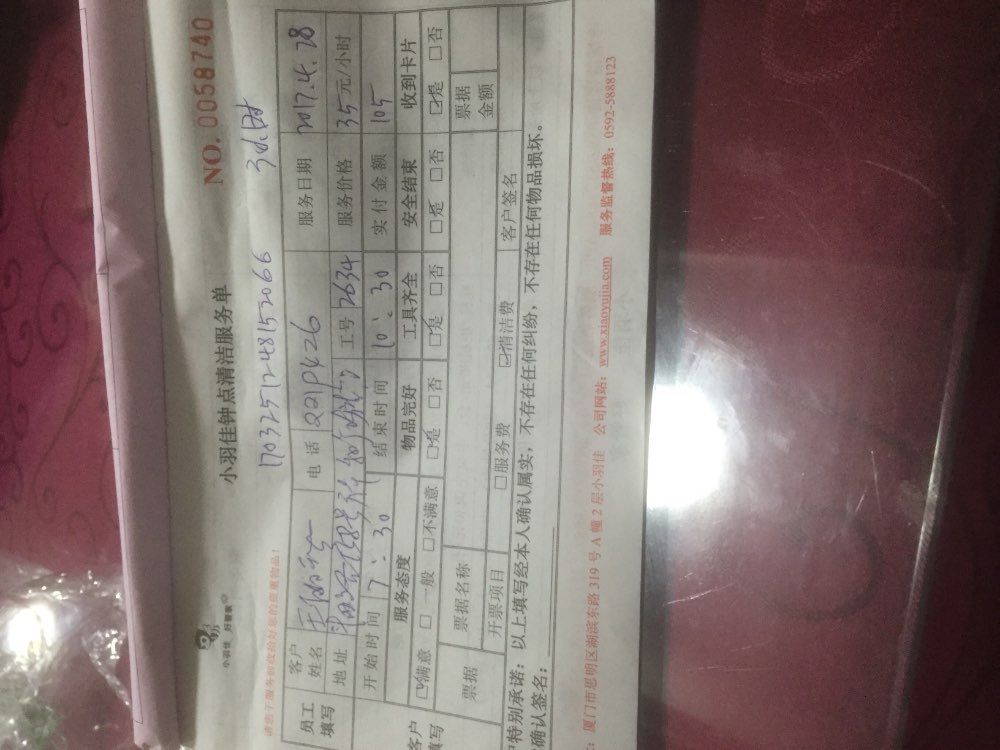 小羽佳 好管家
NO. 0058740
小羽佳钟点清洁服务单
17032517248152066 3小时
请您于服务前收拾好您的贵重物品！
员工填写 客户姓名 电话 服务日期 2017.4.28
地址 工号 2634 服务价格 35元/小时
开始时间 7:30 结束时间 10:30 实付金额 105
服务态度 物品完好 工具齐全 安全结束 收到卡片
☑满意 □一般 □不满意 ☑是 □否 ☑是 □否 □是 □否 ☑是 □否
票据 票据名称 票据金额
开票项目 □服务费 ☑清洁费 客户签名
特别承诺：以上填写经本人确认属实，不存在任何纠纷，不存在任何物品损坏。
确认签名：
厦门市思明区湖滨东路319号A幢2层小羽佳 公司网站：www.xiaoyujia.com 服务监督热线：0592-5888123